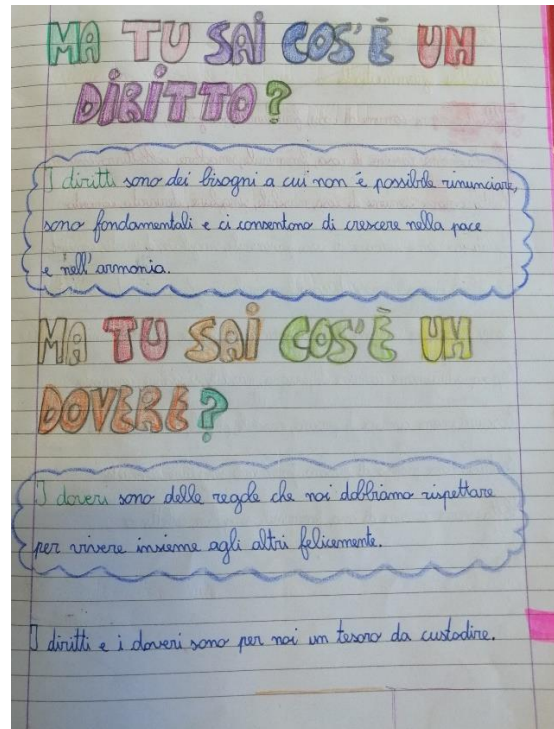 MA TU SAI COS'È UN
DIRITTO?
I diritti sono dei bisogni a cui non è possibile rinunciare,
sono fondamentali e ci consentono di crescere nella pace
e nell'armonia.
MA TU SAI COS'È UN
DOVERE?
I doveri sono delle regole che noi dobbiamo rispettare
per vivere insieme agli altri felicemente.
I diritti e i doveri sono per noi un tesoro da custodire.